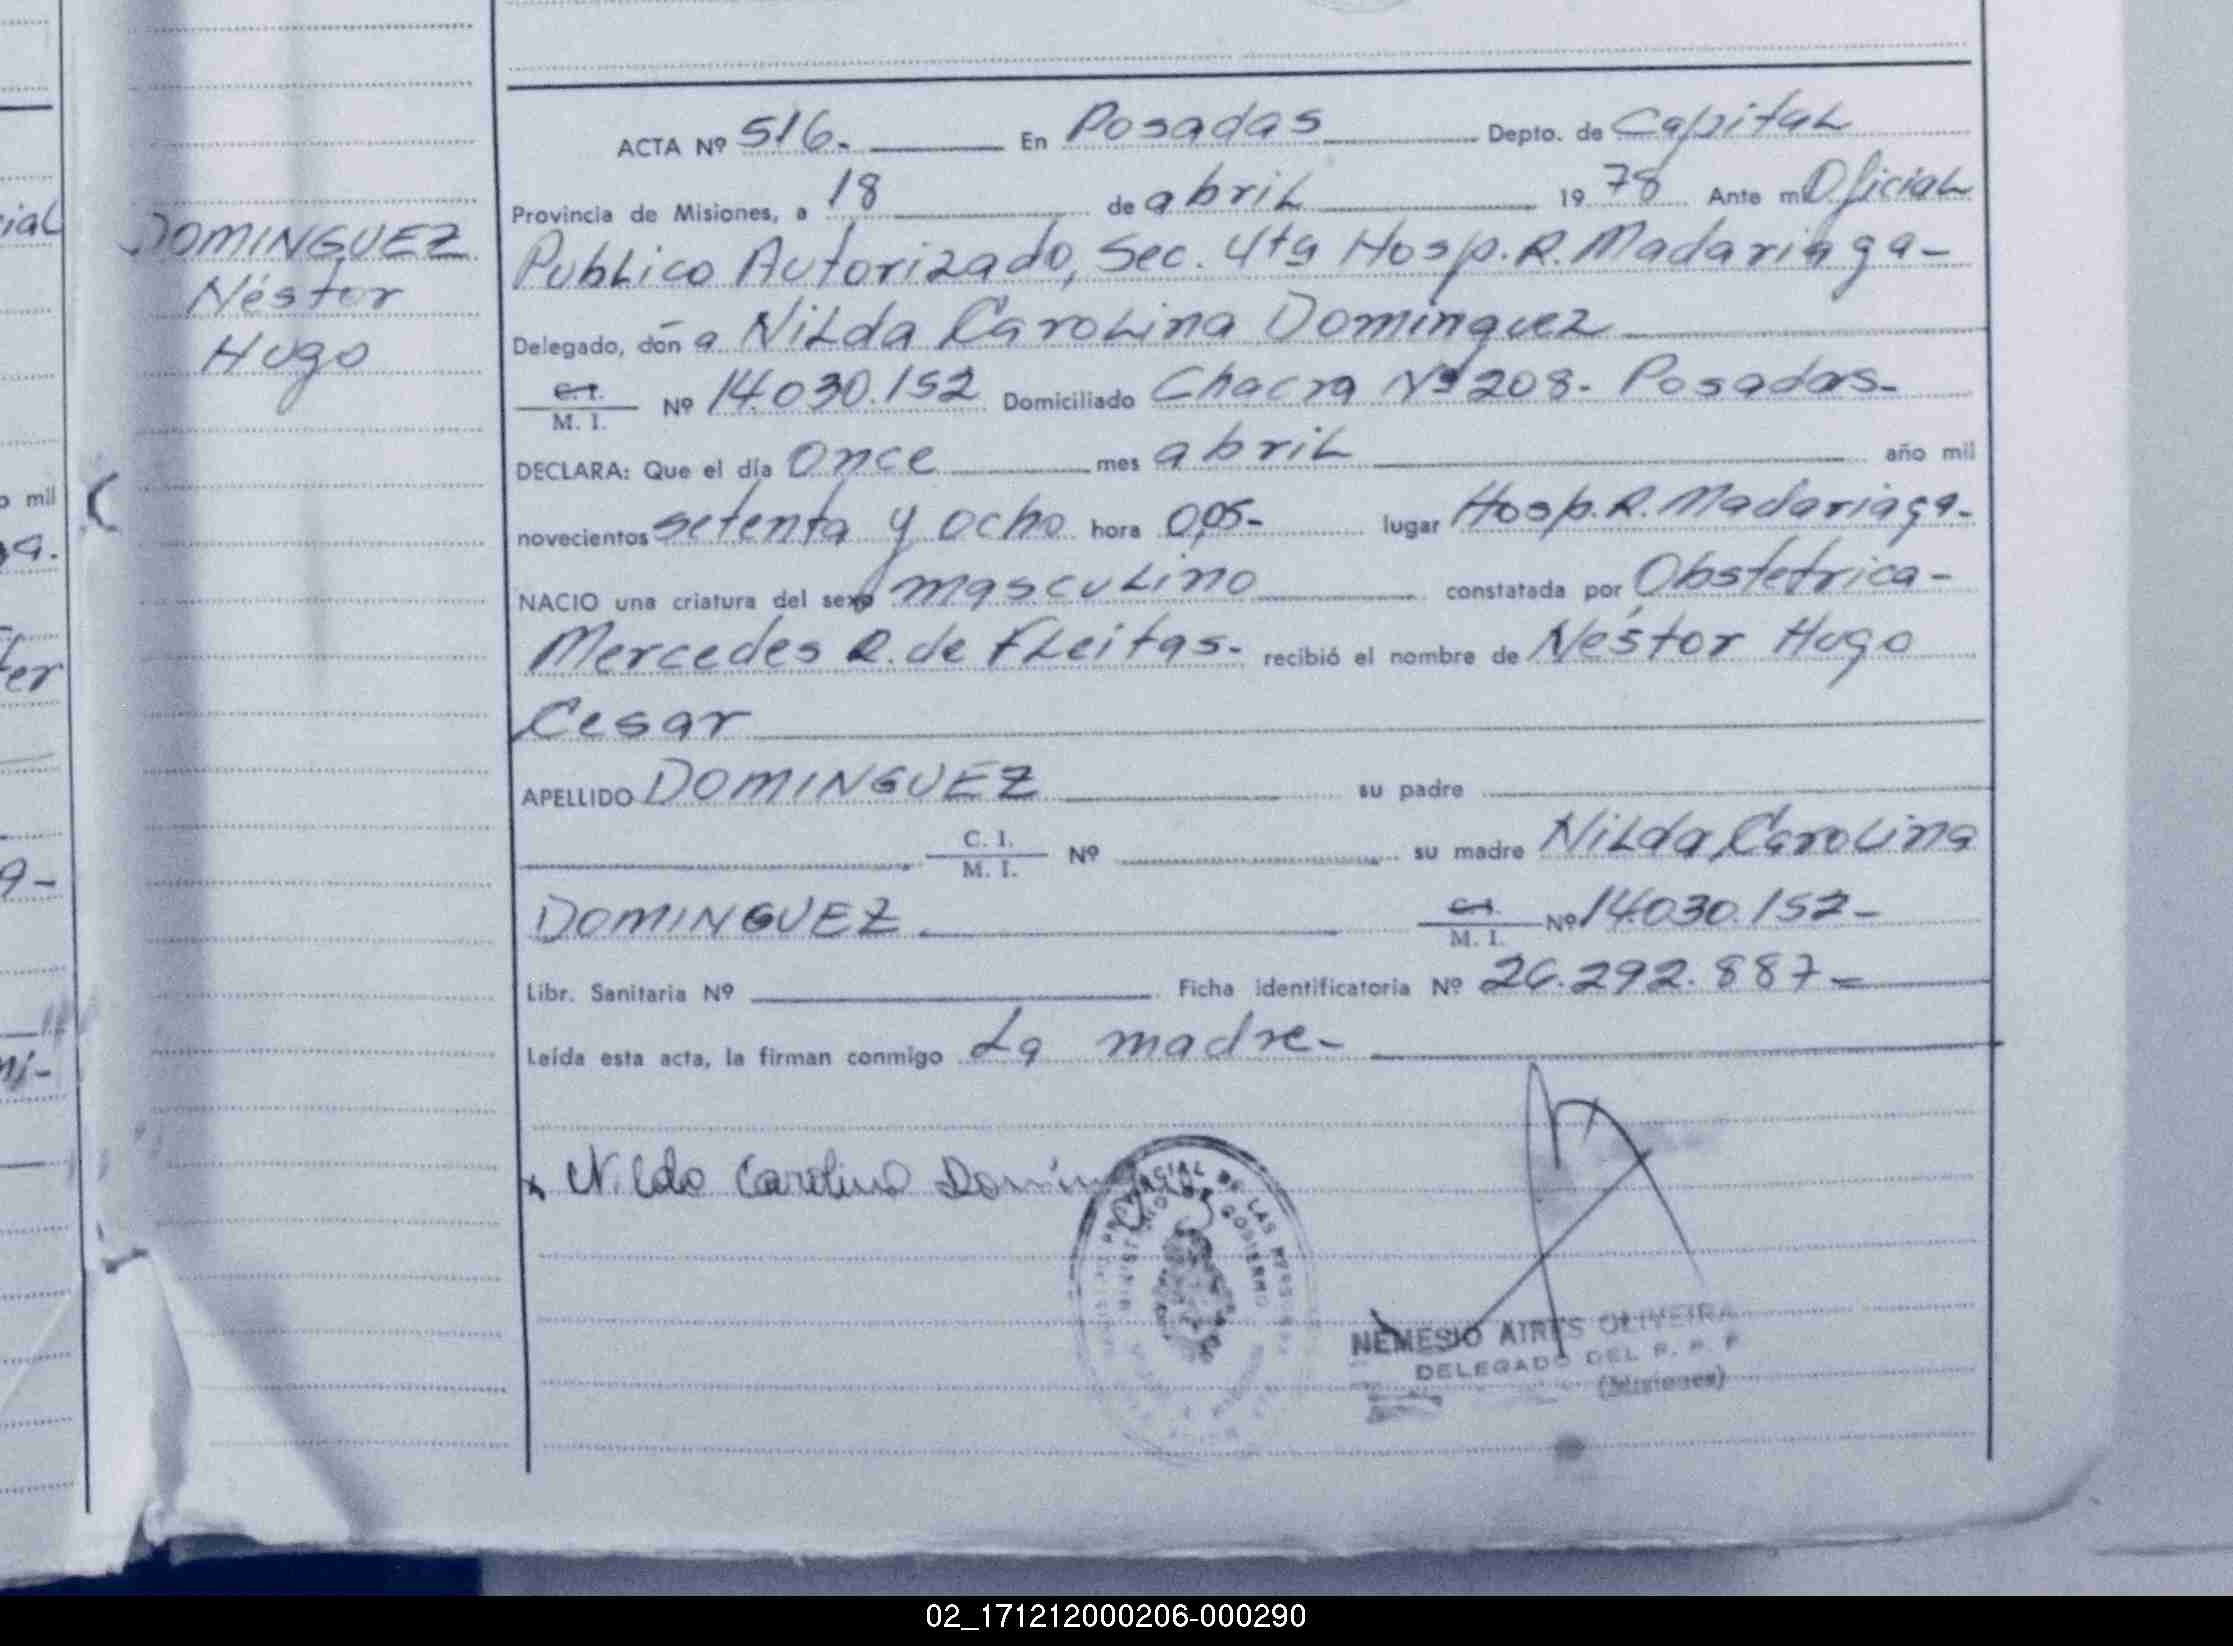 DOMINGUEZ
Néstor
Hugo
ACTA Nº 516.- En Posadas Depto. de Capital
Provincia de Misiones, a 18 de abril 1978 Ante mi Oficial
Publico Autorizado, Sec. 4ta Hosp. R. Madariaga-
Delegado, don a Nilda Carolina Dominguez
C.I.
M. I. Nº 14.030.152 Domiciliado Chacra Nº 208- Posadas-
DECLARA: Que el día Once mes abril año mil
novecientos setenta y ocho hora 0,05- lugar Hosp. R. Madariaga-
NACIO una criatura del sexo masculino constatada por Obstetrica-
Mercedes R. de Fleitas- recibió el nombre de Néstor Hugo
Cesar
APELLIDO DOMINGUEZ su padre
C. I.
M. I. Nº su madre Nilda Carolina
DOMINGUEZ C.I.
M. I. Nº 14.030.152-
Libr. Sanitaria Nº Ficha identificatoria Nº 26.292.887-
Leída esta acta, la firman conmigo La madre-
x Nilda Carolina
PROVINCIAL DE LAS PERSONAS
MINISTERIO DE GOBIERNO
NEMESIO AIRES OLIVEIRA
DELEGADO DEL R. P. P
(Misiones)
cial
o mil
ga.
fer
a-
ni-
02_171212000206-000290